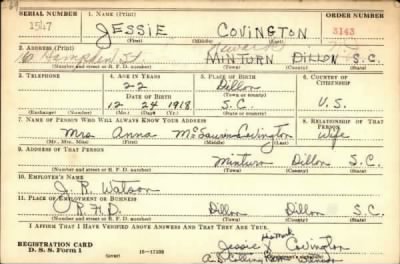 SERIAL NUMBER 1. NAME (Print) ORDER NUMBER
1547 JESSIE COVINGTON 3143
(First) (Middle) (Last)
2. ADDRESS (Print)
6 Hampden St. Newark
MINTURN DILLON S.C.
(Number and street or R. F. D. number) (Town) (County) (State)
3. TELEPHONE 4. AGE IN YEARS 5. PLACE OF BIRTH 6. COUNTRY OF CITIZENSHIP
22 Dillon
DATE OF BIRTH (Town or county)
12 24 1918 S.C. U.S.
(Exchange) (Number) (Mo.) (Day) (Yr.) (State or country)
7. NAME OF PERSON WHO WILL ALWAYS KNOW YOUR ADDRESS 8. RELATIONSHIP OF THAT PERSON
Mrs Anna Covington wife
(Mr., Mrs., Miss) (First) (Middle) (Last)
9. ADDRESS OF THAT PERSON
Minturn Dillon S.C.
(Number and street or R. F. D. number) (Town) (County) (State)
10. EMPLOYER'S NAME
J. R. Watson
11. PLACE OF EMPLOYMENT OR BUSINESS
R.F.D. Dillon Dillon S.C.
(Number and street or R. F. D. number) (Town) (County) (State)
I AFFIRM THAT I HAVE VERIFIED ABOVE ANSWERS AND THAT THEY ARE TRUE.
REGISTRATION CARD his mark
D. S. S. Form 1 16—17105 Jessie X Covington